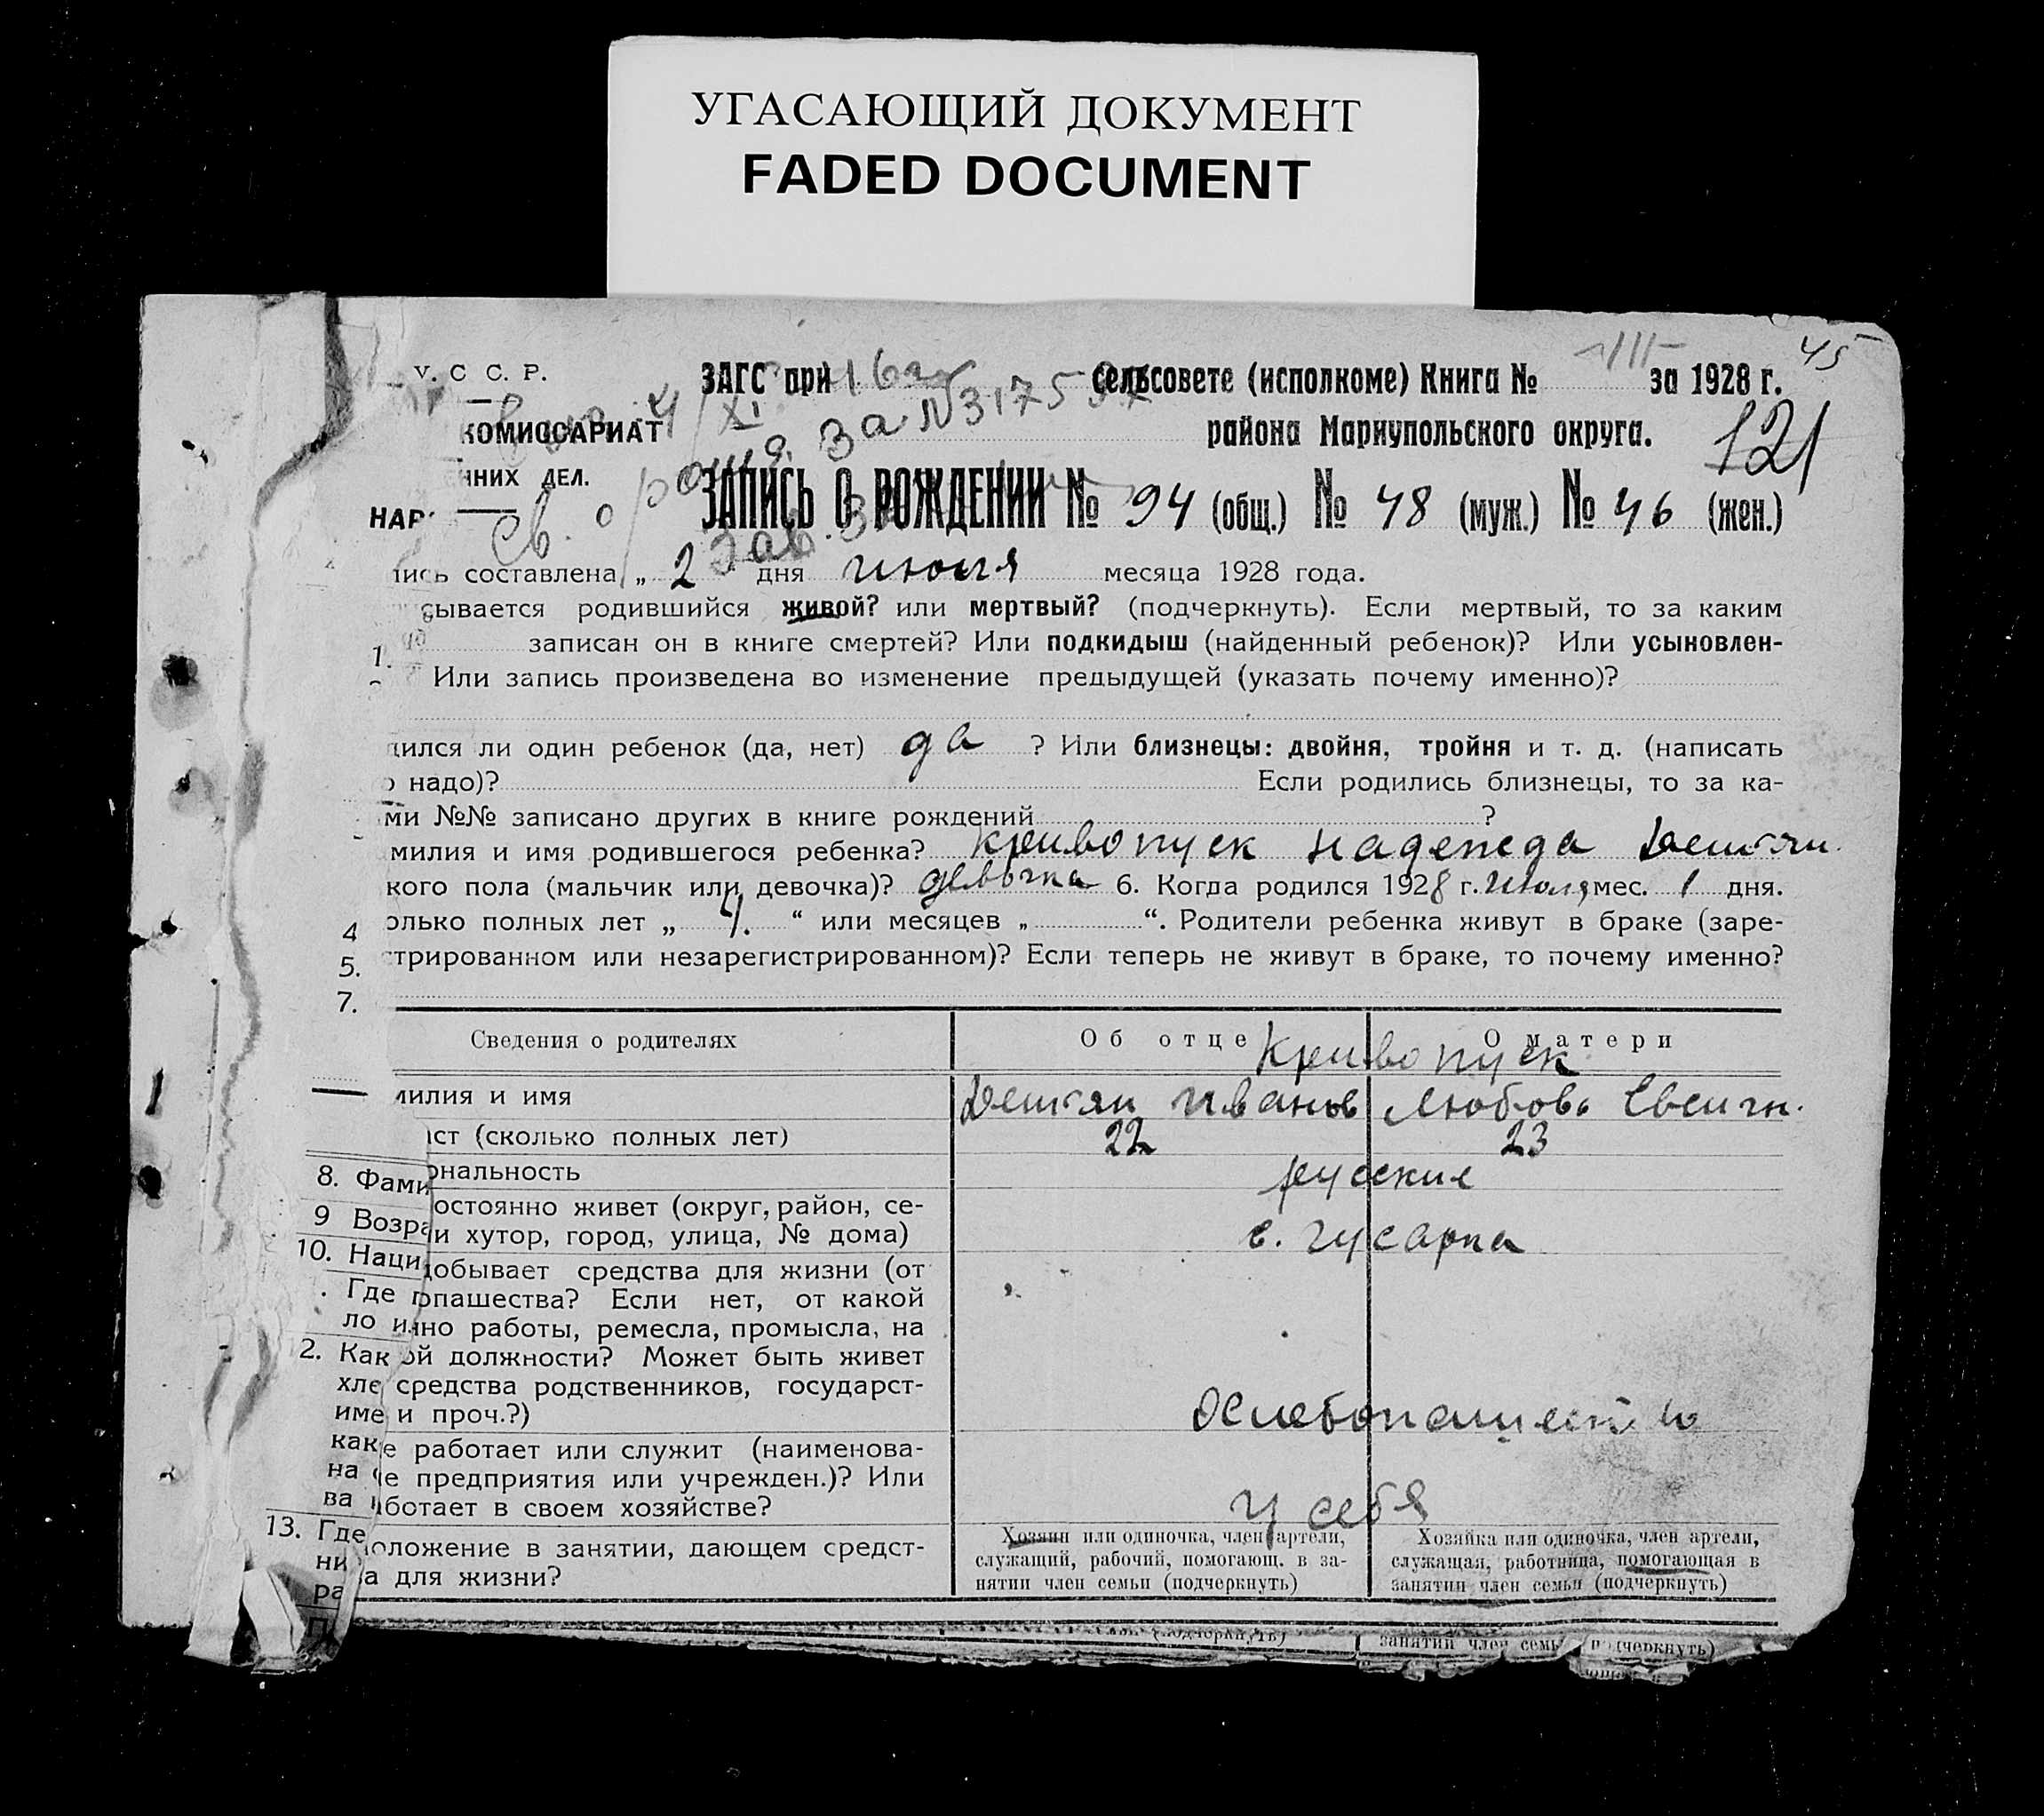 УГАСАЮЩИЙ ДОКУМЕНТ
FADED DOCUMENT
45
У. С С. Р.
ЗАГС при сельсовете (исполкоме) Книга № III за 1928 г.
КОМИССАРИАТ
за №
района Мариупольского округа.
121
ННИХ ДЕЛ.
НАР
св. о рожд.
ЗАПИСЬ О РОЖДЕНИИ № 94 (общ.) № 48 (муж.) № 46 (жен.)
пись составлена „ 2 " дня июля месяца 1928 года.
сывается родившийся живой? или мертвый? (подчеркнуть). Если мертвый, то за каким
1. записан он в книге смертей? Или подкидыш (найденный ребенок)? Или усыновлен-
Или запись произведена во изменение предыдущей (указать почему именно)?
дился ли один ребенок (да, нет) да ? Или близнецы: двойня, тройня и т. д. (написать
о надо)? Если родились близнецы, то за ка-
ми №№ записано других в книге рождений ?
милия и имя родившегося ребенка? Кривопуск Надежда Демьян.
кого пола (мальчик или девочка)? девочка 6. Когда родился 1928 г. июля мес. 1 дня.
4 олько полных лет „ 4. “ или месяцев „ “. Родители ребенка живут в браке (заре-
5. стрированном или незарегистрированном)? Если теперь не живут в браке, то почему именно?
7.
Сведения о родителях Об отце О матери
Кривопуск
милия и имя Демьян Иванов Любовь Евсигн.
аст (сколько полных лет) 22 23
8. Фами ональность русские
9 Возра остоянно живет (округ, район, се-
и хутор, город, улица, № дома) с. Гусарка
10. Наци добывает средства для жизни (от
. Где опашества? Если нет, от какой
ло и нно работы, ремесла, промысла, на
2. Как ой должности? Может быть живет
хле средства родственников, государст-
име и проч.?) Хлебопашество
как е работает или служит (наименова-
на е предприятия или учрежден.)? Или
ва аботает в своем хозяйстве? у себя
13. Где оложение в занятии, дающем средст-
ни ва для жизни?
ра
Хозяин или одиночка, член артели,
служащий, рабочий, помогающ. в за-
нятии член семьи (подчеркнуть)
Хозяйка или одиночка, член артели,
служащая, работница, помогающая в
занятии член семьи (подчеркнуть)
П
(подчеркнуть) занятии член семь подчеркнуть)